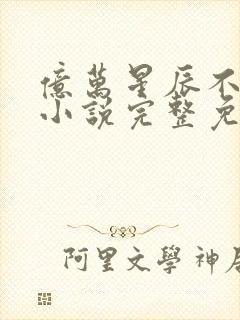 億萬星辰不
小說完整免
阿里文學神居